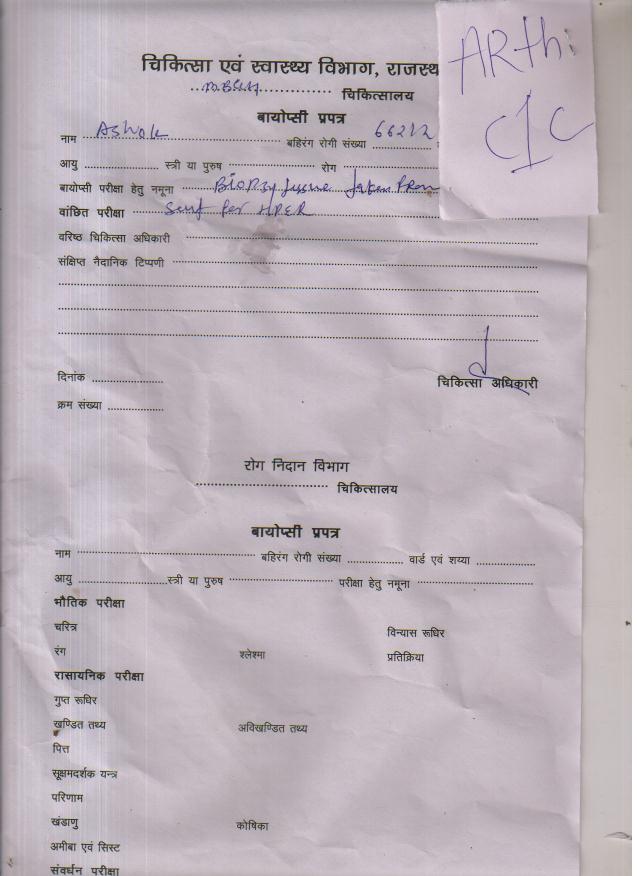 चिकित्सा एवं स्वास्थ्य विभाग, राजस्थ
ARthi
C/C
.................... चिकित्सालय
बायोप्सी प्रपत्र
नाम Ashok बहिरंग रोगी संख्या 66212
आयु .................... स्त्री या पुरुष .................... रोग ....................
बायोप्सी परीक्षा हेतु नमूना Biopsy tissue taken From
वांछित परीक्षा Sent for HPER
वरिष्ठ चिकित्सा अधिकारी ....................
संक्षिप्त नैदानिक टिप्पणी ....................
दिनांक ....................
चिकित्सा अधिकारी
क्रम संख्या ....................
रोग निदान विभाग
.................... चिकित्सालय
बायोप्सी प्रपत्र
नाम .................... बहिरंग रोगी संख्या .................... वार्ड एवं शय्या ....................
आयु .................... स्त्री या पुरुष .................... परीक्षा हेतु नमूना ....................
भौतिक परीक्षा
चरित्र विन्यास रूधिर
रंग श्लेश्मा प्रतिक्रिया
रासायनिक परीक्षा
गुप्त रूधिर
खण्डित तथ्य अविखण्डित तथ्य
पित्त
सूक्षमदर्शक यन्त्र
परिणाम
खंडाणु कोषिका
अमीबा एवं सिस्ट
संवर्धन परीक्षा